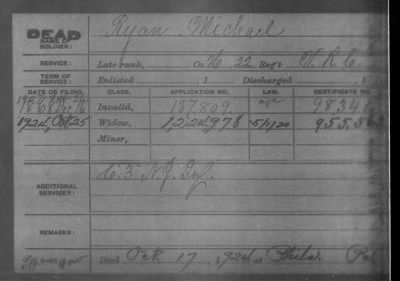 DEAD Ryan Michael
NAME OF SOLDIER:
SERVICE: Late rank, Co. H, 22 Regt V. R. C.
TERM OF SERVICE: Enlisted , 1 Discharged , 1
DATE OF FILING. CLASS. APPLICATION NO. LAW. CERTIFICATE NO.
Dec Invalid, 187809 age
1924, Oct 25 Widow, 1224978 5/1/20
Minor,
ADDITIONAL SERVICES: N.J. Inf.
REMARKS:
Died Oct 17, 1924 at Phila. Pa